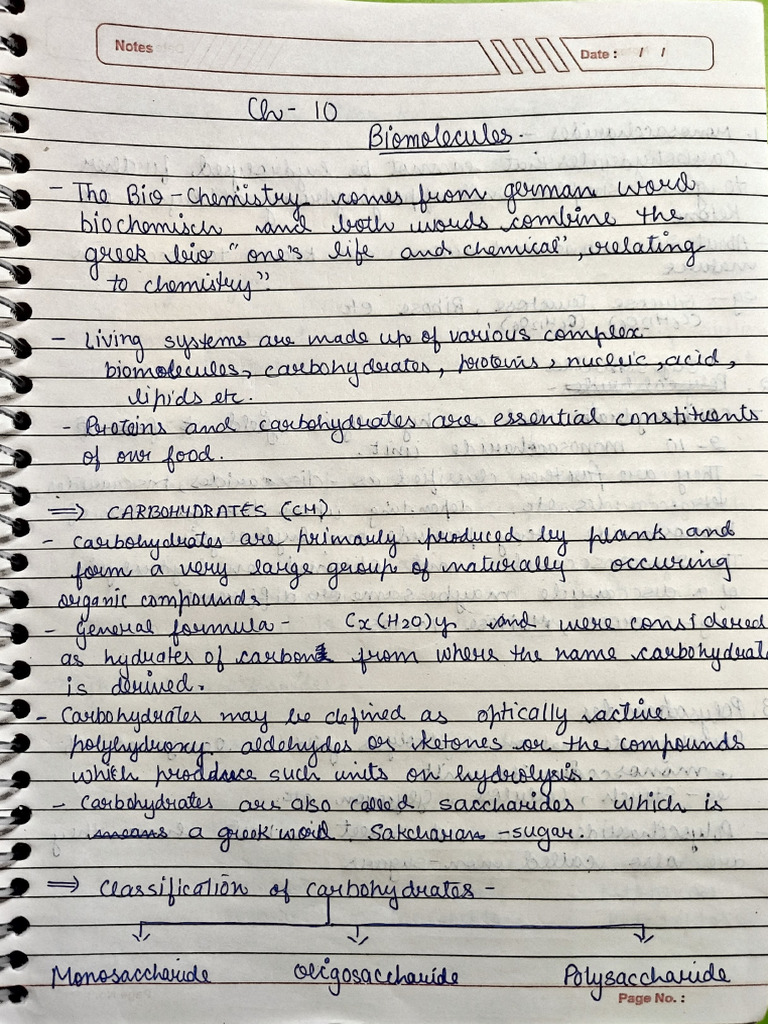 Notes
Date : / /
Ch - 10
Biomolecules.
- The Bio - Chemistry comes from german word
biochemisch and both words combine the
greek bio "one's life and chemical", relating
to chemistry".
- Living systems are made up of various complex
biomolecules, carbohydrates, proteins, nucleic, acid,
lipids etc.
- Proteins and carbohydrates are essential constituents
of our food.
⇒ CARBOHYDRATES (CH)
- Carbohydrates are primarly produced by plants and
form a very large group of naturally occuring
organic compounds.
- General formula - Cx(H2O)y and were considered
as hydrates of carbon from where the name carbohydrate
is derived.
- Carbohydrates may be defined as optically active
polyhydroxy aldehydes or ketones or the compounds
which produce such units on hydrolysis.
- Carbohydrates are also called saccharides which is
means a greek word Sakcharan - sugar.
⇒ Classification of carbohydrates -
Monosaccharide Oligosaccharide Polysaccharide
Page No. :